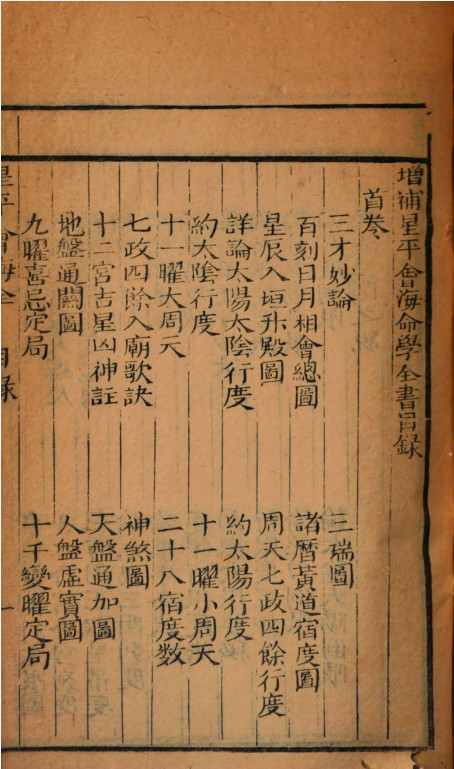 增補星平會海命學全書目録
首卷
三才妙論 三瑞圖
百刻日月相會總圖 諸曆黃道宿度圖
星辰入垣升殿圖 周天七政四餘行度
詳論太陽太陰行度 約太陽行度
約太陰行度 十一曜小周天
十一曜大周天 二十八宿度數
七政四餘入廟歌訣 神煞圖
十二宮吉星凶神註 天盤通加圖
地盤通關圖 人盤虛實圖
九曜喜忌定局 十千變曜定局
星平會海全 目録 一